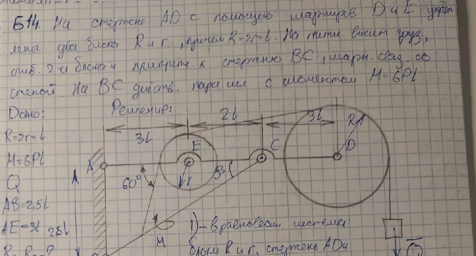 Б14. На стержне AD с помощью шарниров D и E укреп
лены два блока R и r, причем R=2r=l. На нити висит груз,
блока и прикреплен к стержню BC, шарн. связ. со
стеной На BC действ. пара сил с моментом M=6Pl
Дано: Решение:
R=2r=l
M=6Pl
Q
AB=2,5l
AE=3l
3l 2l 3l
A E C D
R
60°
r
M
1) - в равновесии система
блоки R и r, стержень AD и
Q